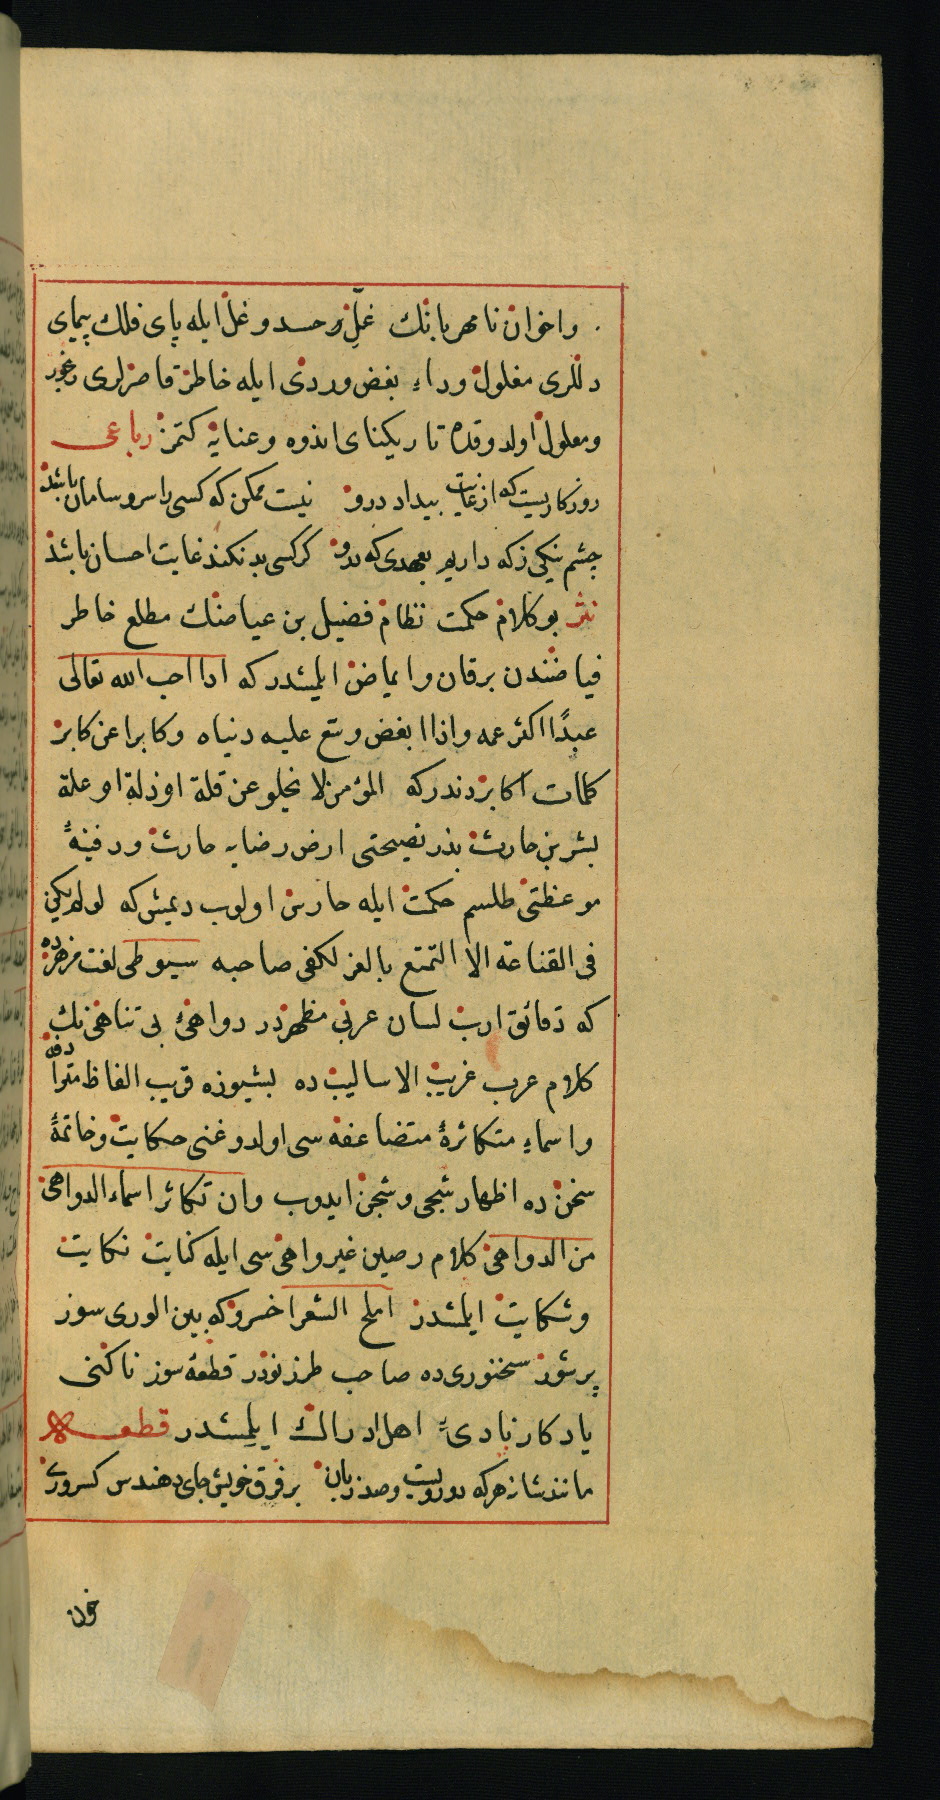 واخوان نامهربانك غلِّ وحسد وغل ايله پاى فلك پيماى
دللرى مغلول وداء بغض وردى ايله خاطر قاصرلرى رنجور
ومعلول اولدوقده تاريكناى انذوه وعنايه كتمز رباعى
روزكاريست كه از غايت بيداد درو نيست ممكن كه كسى را سر وسامان باشد
چشم نيكى زكه داريم بعهدى كه درو كر كسى بد نكند غايت احسان باشد
نثر بو كلام حكمت نظام فضيل بن عياضنك مطلع خاطر
فياضندن برقان وايماض ايلمشدر كه اذا احب الله تعالى
عبدًا اكثر عمه واذا ابغض وسّع عليه دنياه وكابرا عن كابر
كلمات اكابردندر كه المؤمن لا يخلو عن قلة او ذلة او علة
بشر بن حارث بذر نصيحتى ارض رضايه حارث ودفينهٔ
موعظتى طلسم حكمت ايله حارس اولوب ديمش كه لو لم يكن
فى القناعة الا التمتع بالعز لكفى صاحبه سيوطى لغت مزهرده
كه دقائق ارب لسان عربى مظهردر دواهئ بى تناهى نك
كلام عرب غريب الاساليب ده بشيوزه قريب الفاظ مترادفه
واسماء متكاثرهٔ متضاعفه سى اولدوغنى حكايت وخاتمهٔ
سخن ده اظهار شجى وشجن ايدوب وان تكاثر اسماء الدواهى
من الدواهى كلام رصين غير واهى سى ايله كنايت نكايت
وشكايت ايلمشدر املح الشعرا خسرو كه بين الورى سوز
پرشور سخنورى ده صاحب طرز نودر قطعهٔ سوز ناكنى
يادكار نادىٔ اهل ادراك ايلمشدر قطعه
مانند شانه هر كه دورويست وصد زبان بر فرق خويش جاى دهندس كسرورى
خون